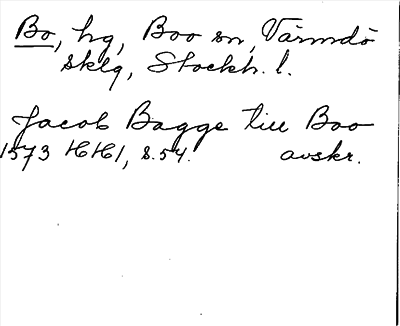 Bo, hg, Boo sn, Värmdö
sklg, Stockh. l.
Jacob Bagge till Boo
1573 HH1, s. 54. avskr.